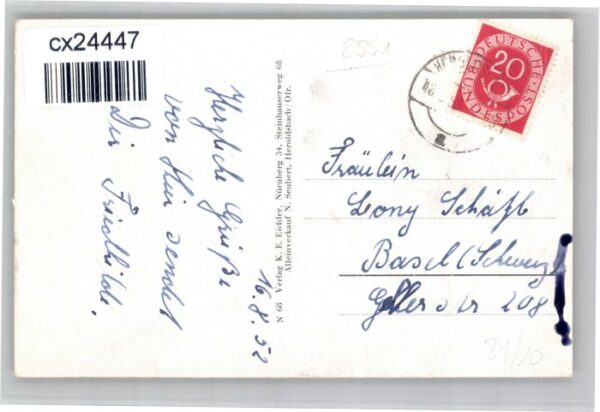 cx24447
Herzliche Grüße
von Hier sendet
Dir Friedhilde.
16.8.52
N 68 Verlag K. E. Eichler, Nürnberg 34, Steinhauserweg 68
Alleinverkauf N. Seubert, Heroldsbach/Ofr.
8551
DEUTSCHE BUNDESPOST
20
a
Fräulein
Lony Schäfl
Basel (Schweiz)
Gellerstr 208
34/10